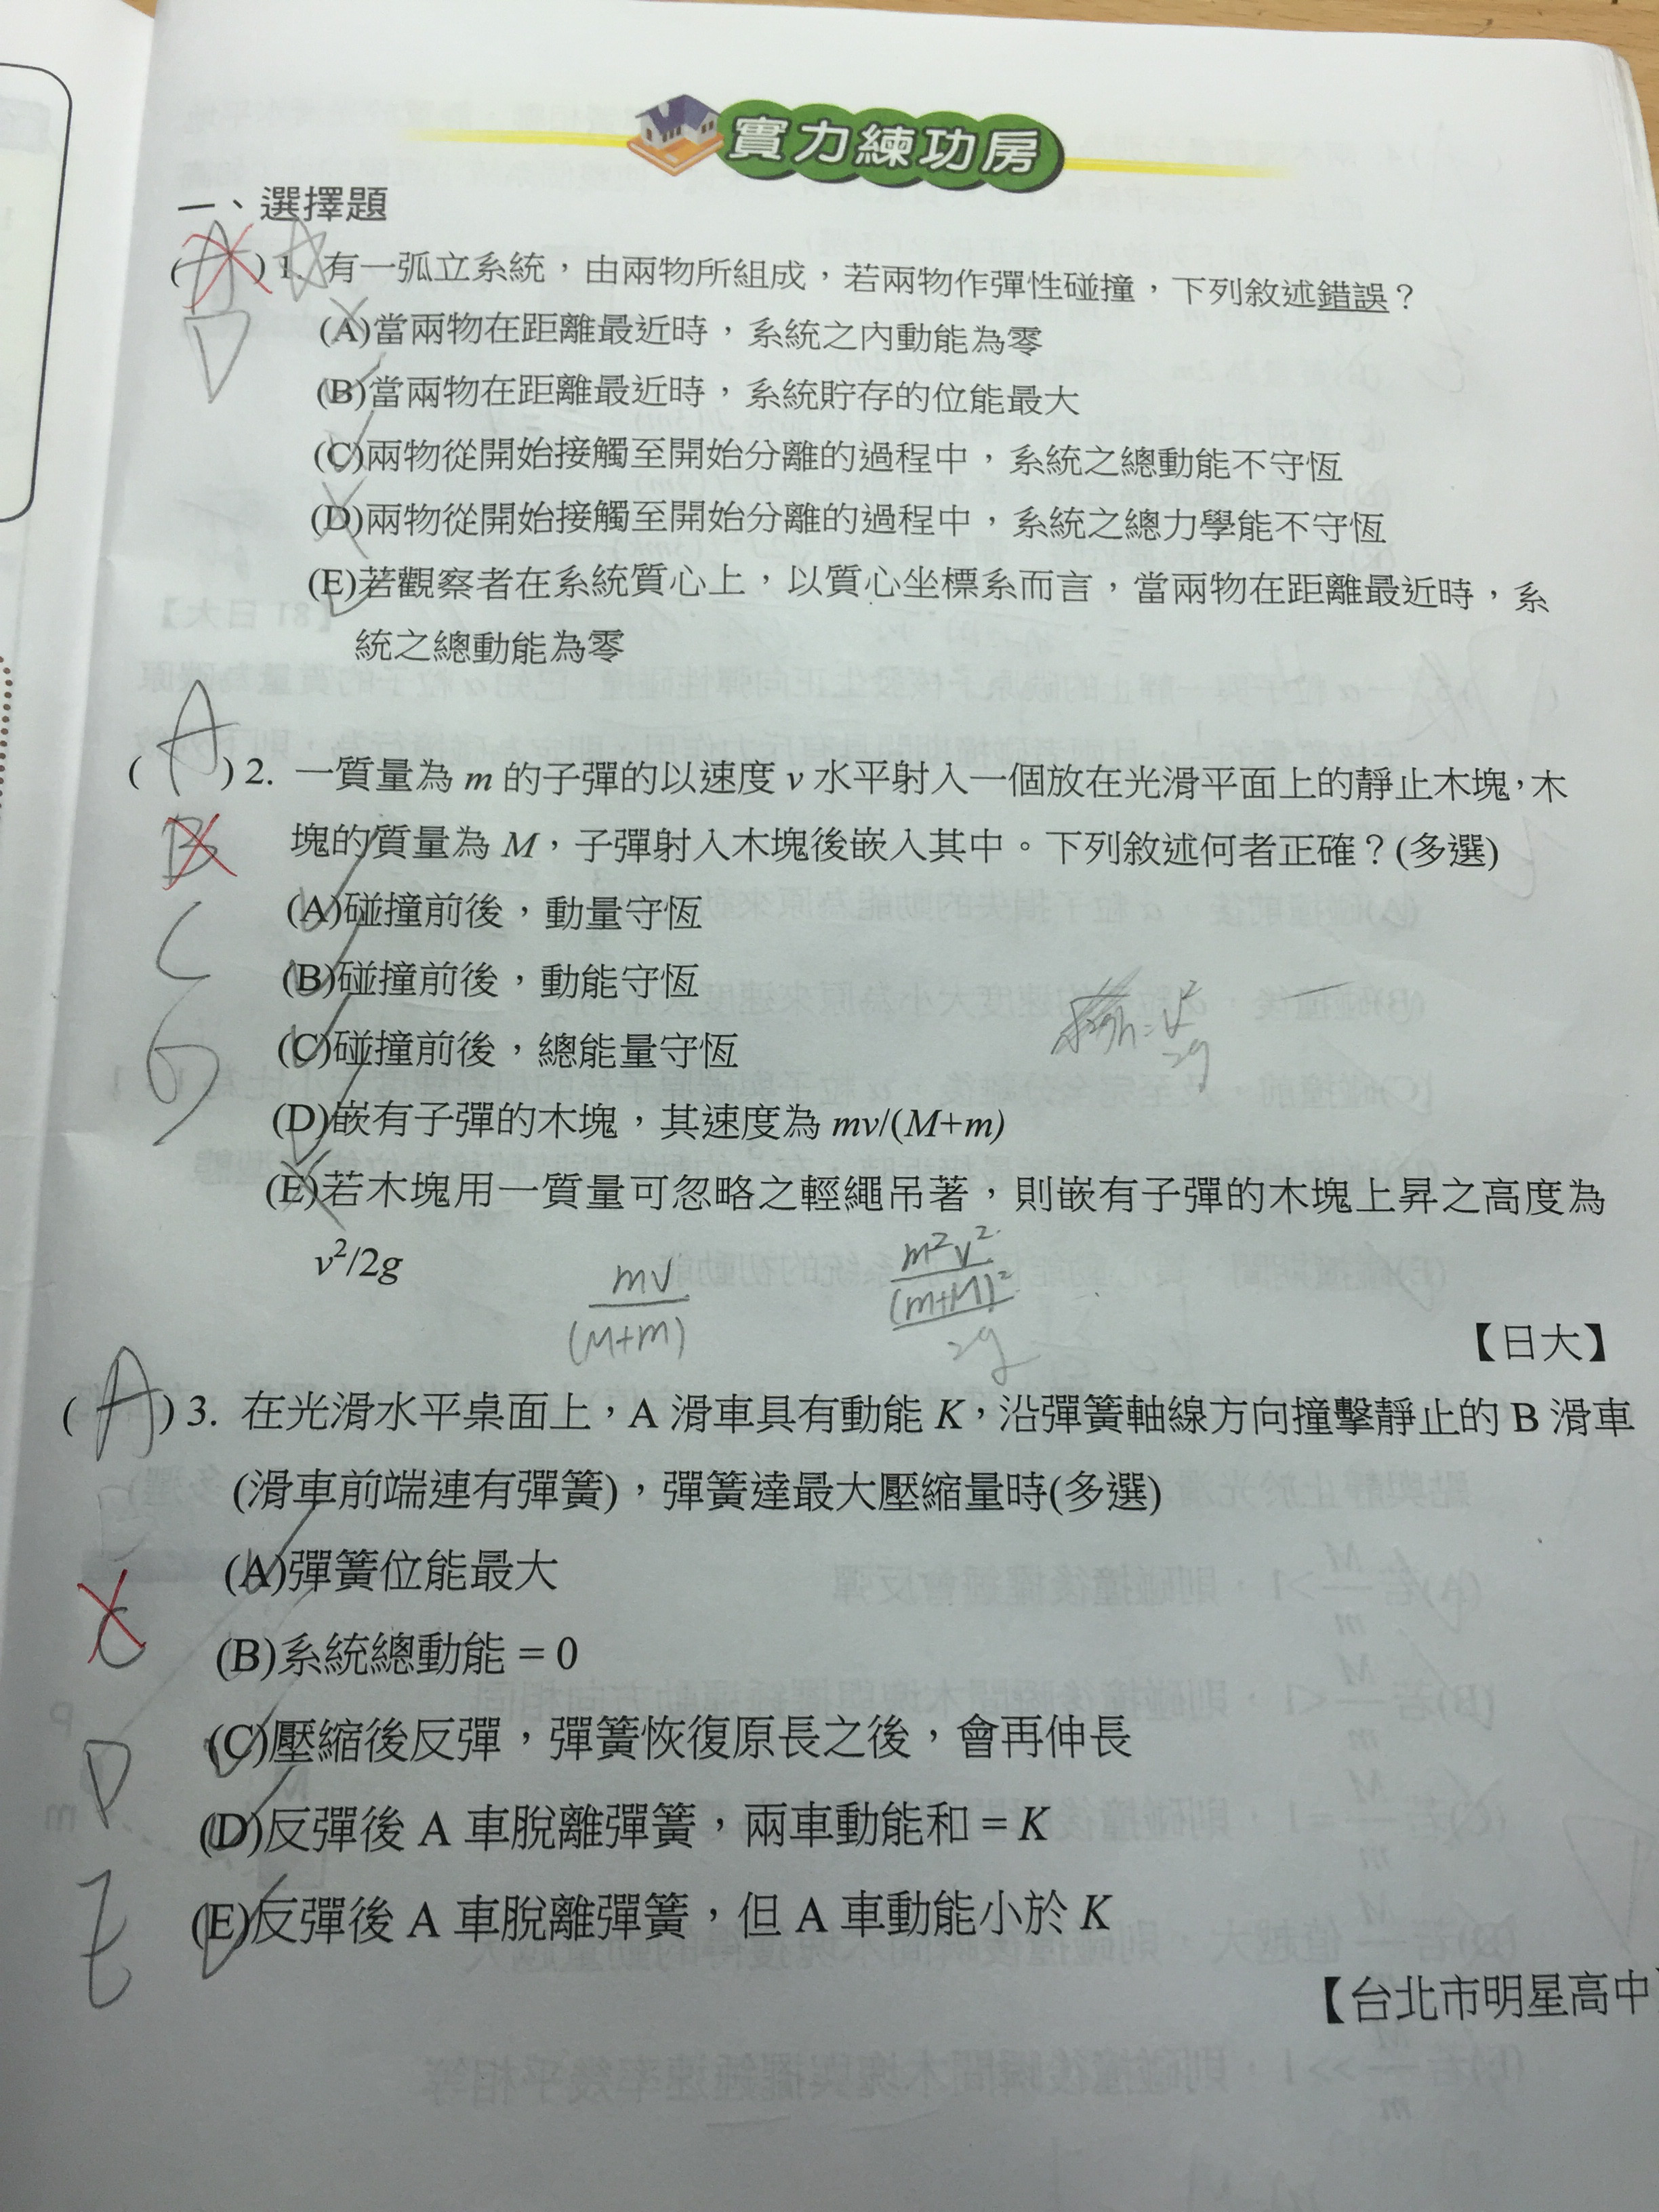 實力練功房
一、選擇題
(A) 1. 有一弧立系統，由兩物所組成，若兩物作彈性碰撞，下列敘述錯誤？
D
(A)當兩物在距離最近時，系統之內動能為零
(B)當兩物在距離最近時，系統貯存的位能最大
(C)兩物從開始接觸至開始分離的過程中，系統之總動能不守恆
(D)兩物從開始接觸至開始分離的過程中，系統之總力學能不守恆
(E)若觀察者在系統質心上，以質心坐標系而言，當兩物在距離最近時，系
統之總動能為零
(A) 2. 一質量為 m 的子彈的以速度 v 水平射入一個放在光滑平面上的靜止木塊，木
B
塊的質量為 M，子彈射入木塊後嵌入其中。下列敘述何者正確？(多選)
(A)碰撞前後，動量守恆
C
(B)碰撞前後，動能守恆
(C)碰撞前後，總能量守恆
(D)嵌有子彈的木塊，其速度為 mv/(M+m)
(E)若木塊用一質量可忽略之輕繩吊著，則嵌有子彈的木塊上昇之高度為
v²/2g
mv/(M+m)
m²v²/(m+M)²/2g
【日大】
(A) 3. 在光滑水平桌面上，A 滑車具有動能 K，沿彈簧軸線方向撞擊靜止的 B 滑車
(滑車前端連有彈簧)，彈簧達最大壓縮量時(多選)
(A)彈簧位能最大
C
(B)系統總動能 = 0
(C)壓縮後反彈，彈簧恢復原長之後，會再伸長
D
(D)反彈後 A 車脫離彈簧，兩車動能和 = K
E
(E)反彈後 A 車脫離彈簧，但 A 車動能小於 K
【台北市明星高中】